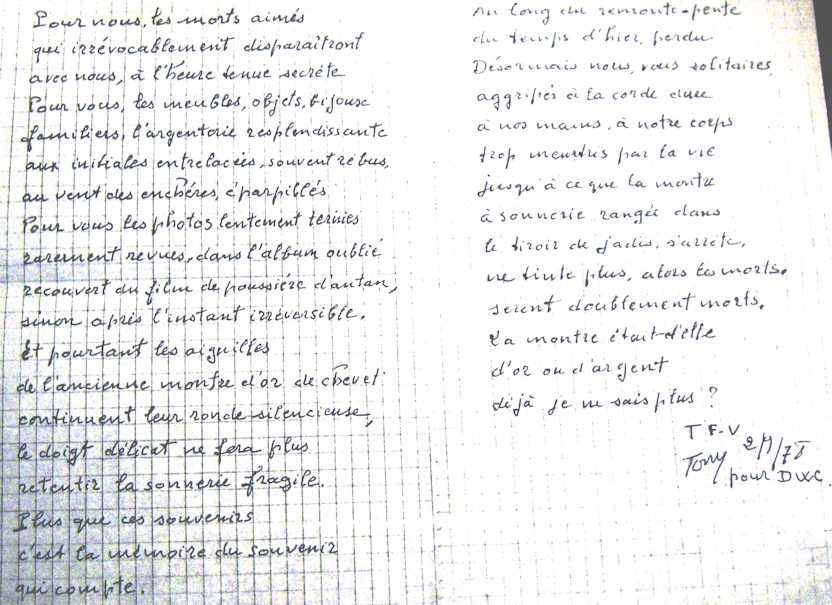 Pour nous, les morts aimés
qui irrévocablement disparaîtront
avec nous, à l'heure tenue secrète
Pour vous, les meubles, objets, bijoux
familiers, l'argenterie resplendissante
aux initiales entrelacées, souvent rébus,
au vent des enchères, éparpillés
Pour vous les photos lentement ternies
rarement revues, dans l'album oublié
recouvert du film de poussière d'autan,
sinon après l'instant irréversible.
Et pourtant les aiguilles
de l'ancienne montre d'or de chevet
continuent leur ronde silencieuse,
le doigt délicat ne fera plus
retentir la sonnerie fragile.
Plus que ces souvenirs
c'est la mémoire du souvenir
qui compte.
Au long du remonte-pente
du temps d'hier, perdu
Désormais nous, vous solitaires
aggripés à la corde
à nos mains, à notre corps
trop meurtris par la vie
jusqu'à ce que la montre
à sonnerie rangée dans
le tiroir de jadis, s'arrête,
ne tinte plus, alors les morts.
seront doublement morts.
La montre était-elle
d'or ou d'argent
déjà je ne sais plus ?
T F-V
Tony
pour DWC.